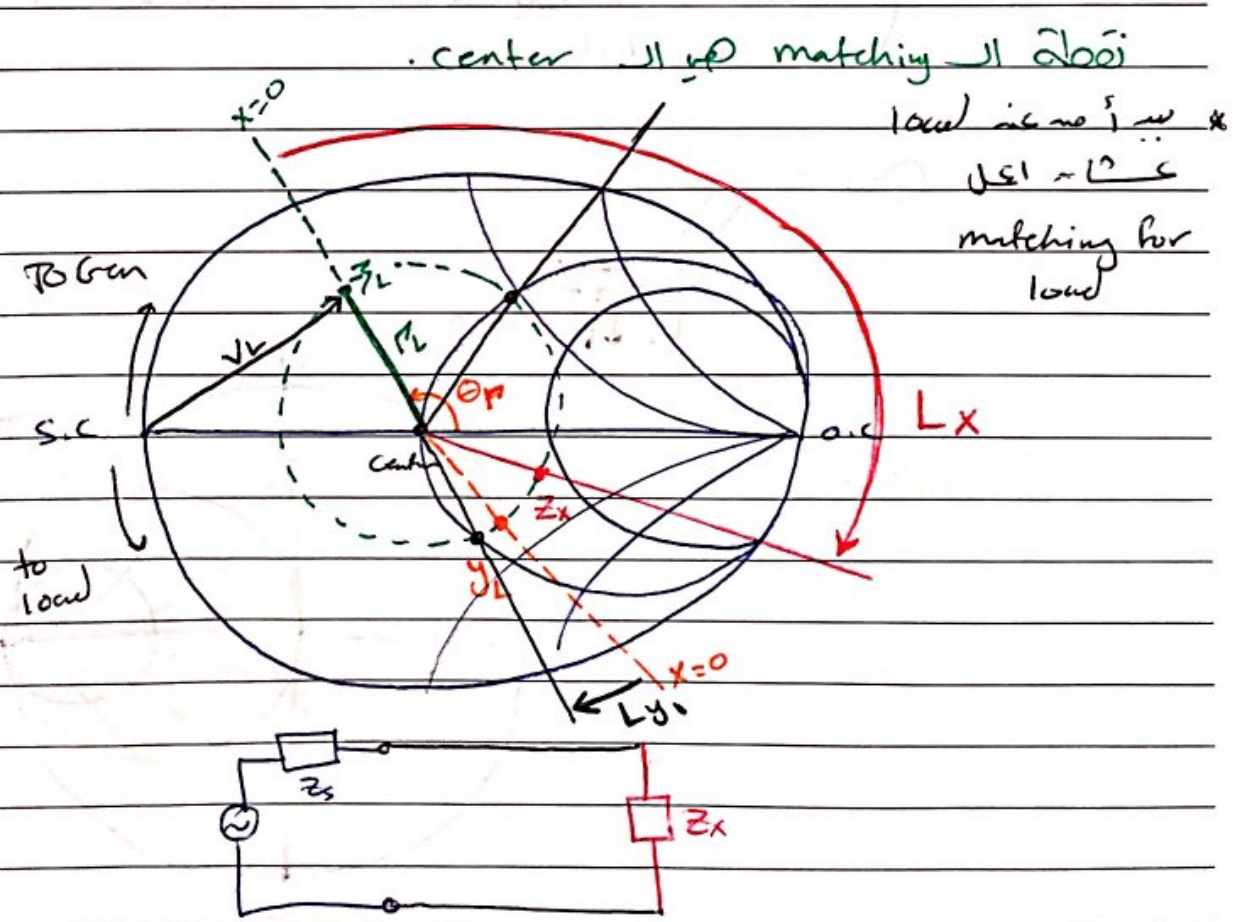 نقطة الـ matching هي الـ center.
x=0
* يبدأ من عند load
عشان اعمل
matching for
load
To Gen
ʒL
VL
ΓL
θΓ
S.C
O.C
Lx
Center
Zx
to
load
yL
x=0
Ly1
Zs
~
Zx